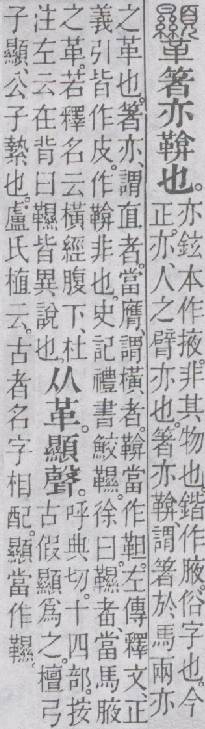 韅箸亦鞥也。
亦鉉本作掖。非其物也。鍇作腋。俗字也。今
正。亦、人之臂亦也。箸亦鞥、謂箸於馬兩亦
之革也。箸亦、謂直者。當膺、謂橫者。鞥當作靼。左傳釋文、正
義引皆作皮。作鞥非也。史記禮書鮫韅。徐曰韅者、當馬腋
之革。若釋名云橫經腹下、杜
注左云在背曰韅皆異說也。
从革。顯聲。
呼典切。十四部。按
古假顯爲之。檀弓
子顯、公子縶也。盧氏植云。古者名字相配。顯當作韅。